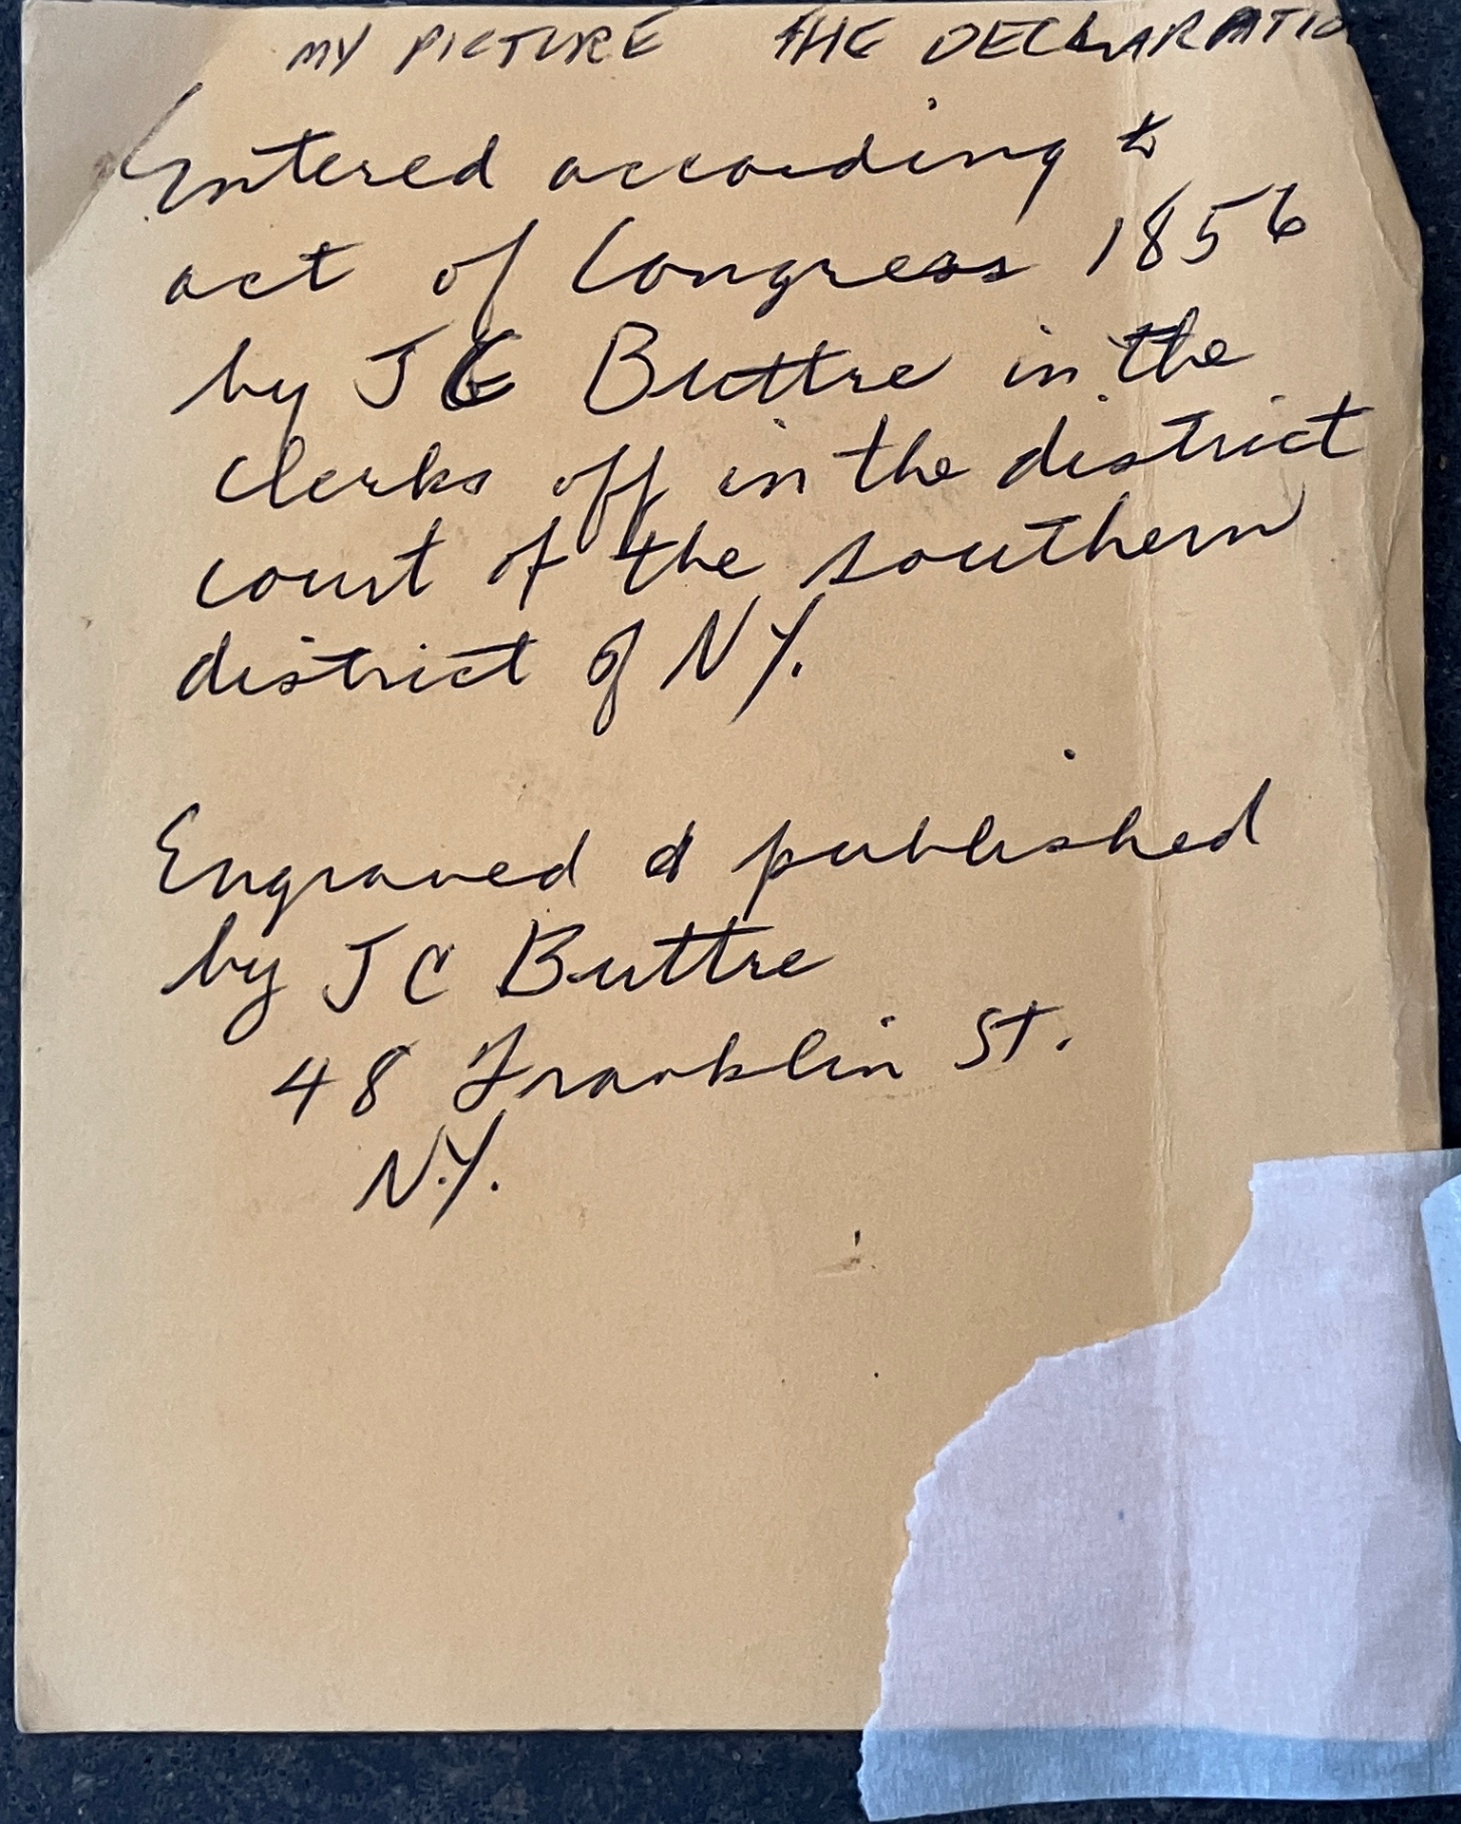 MY PICTURE THE DECLARATIO
Entered according to
act of Congress 1856
by J C Buttre in the
clerks off in the district
court of the southern
district of NY.
Engraved & published
by J C Buttre
48 Franklin St.
N.Y.